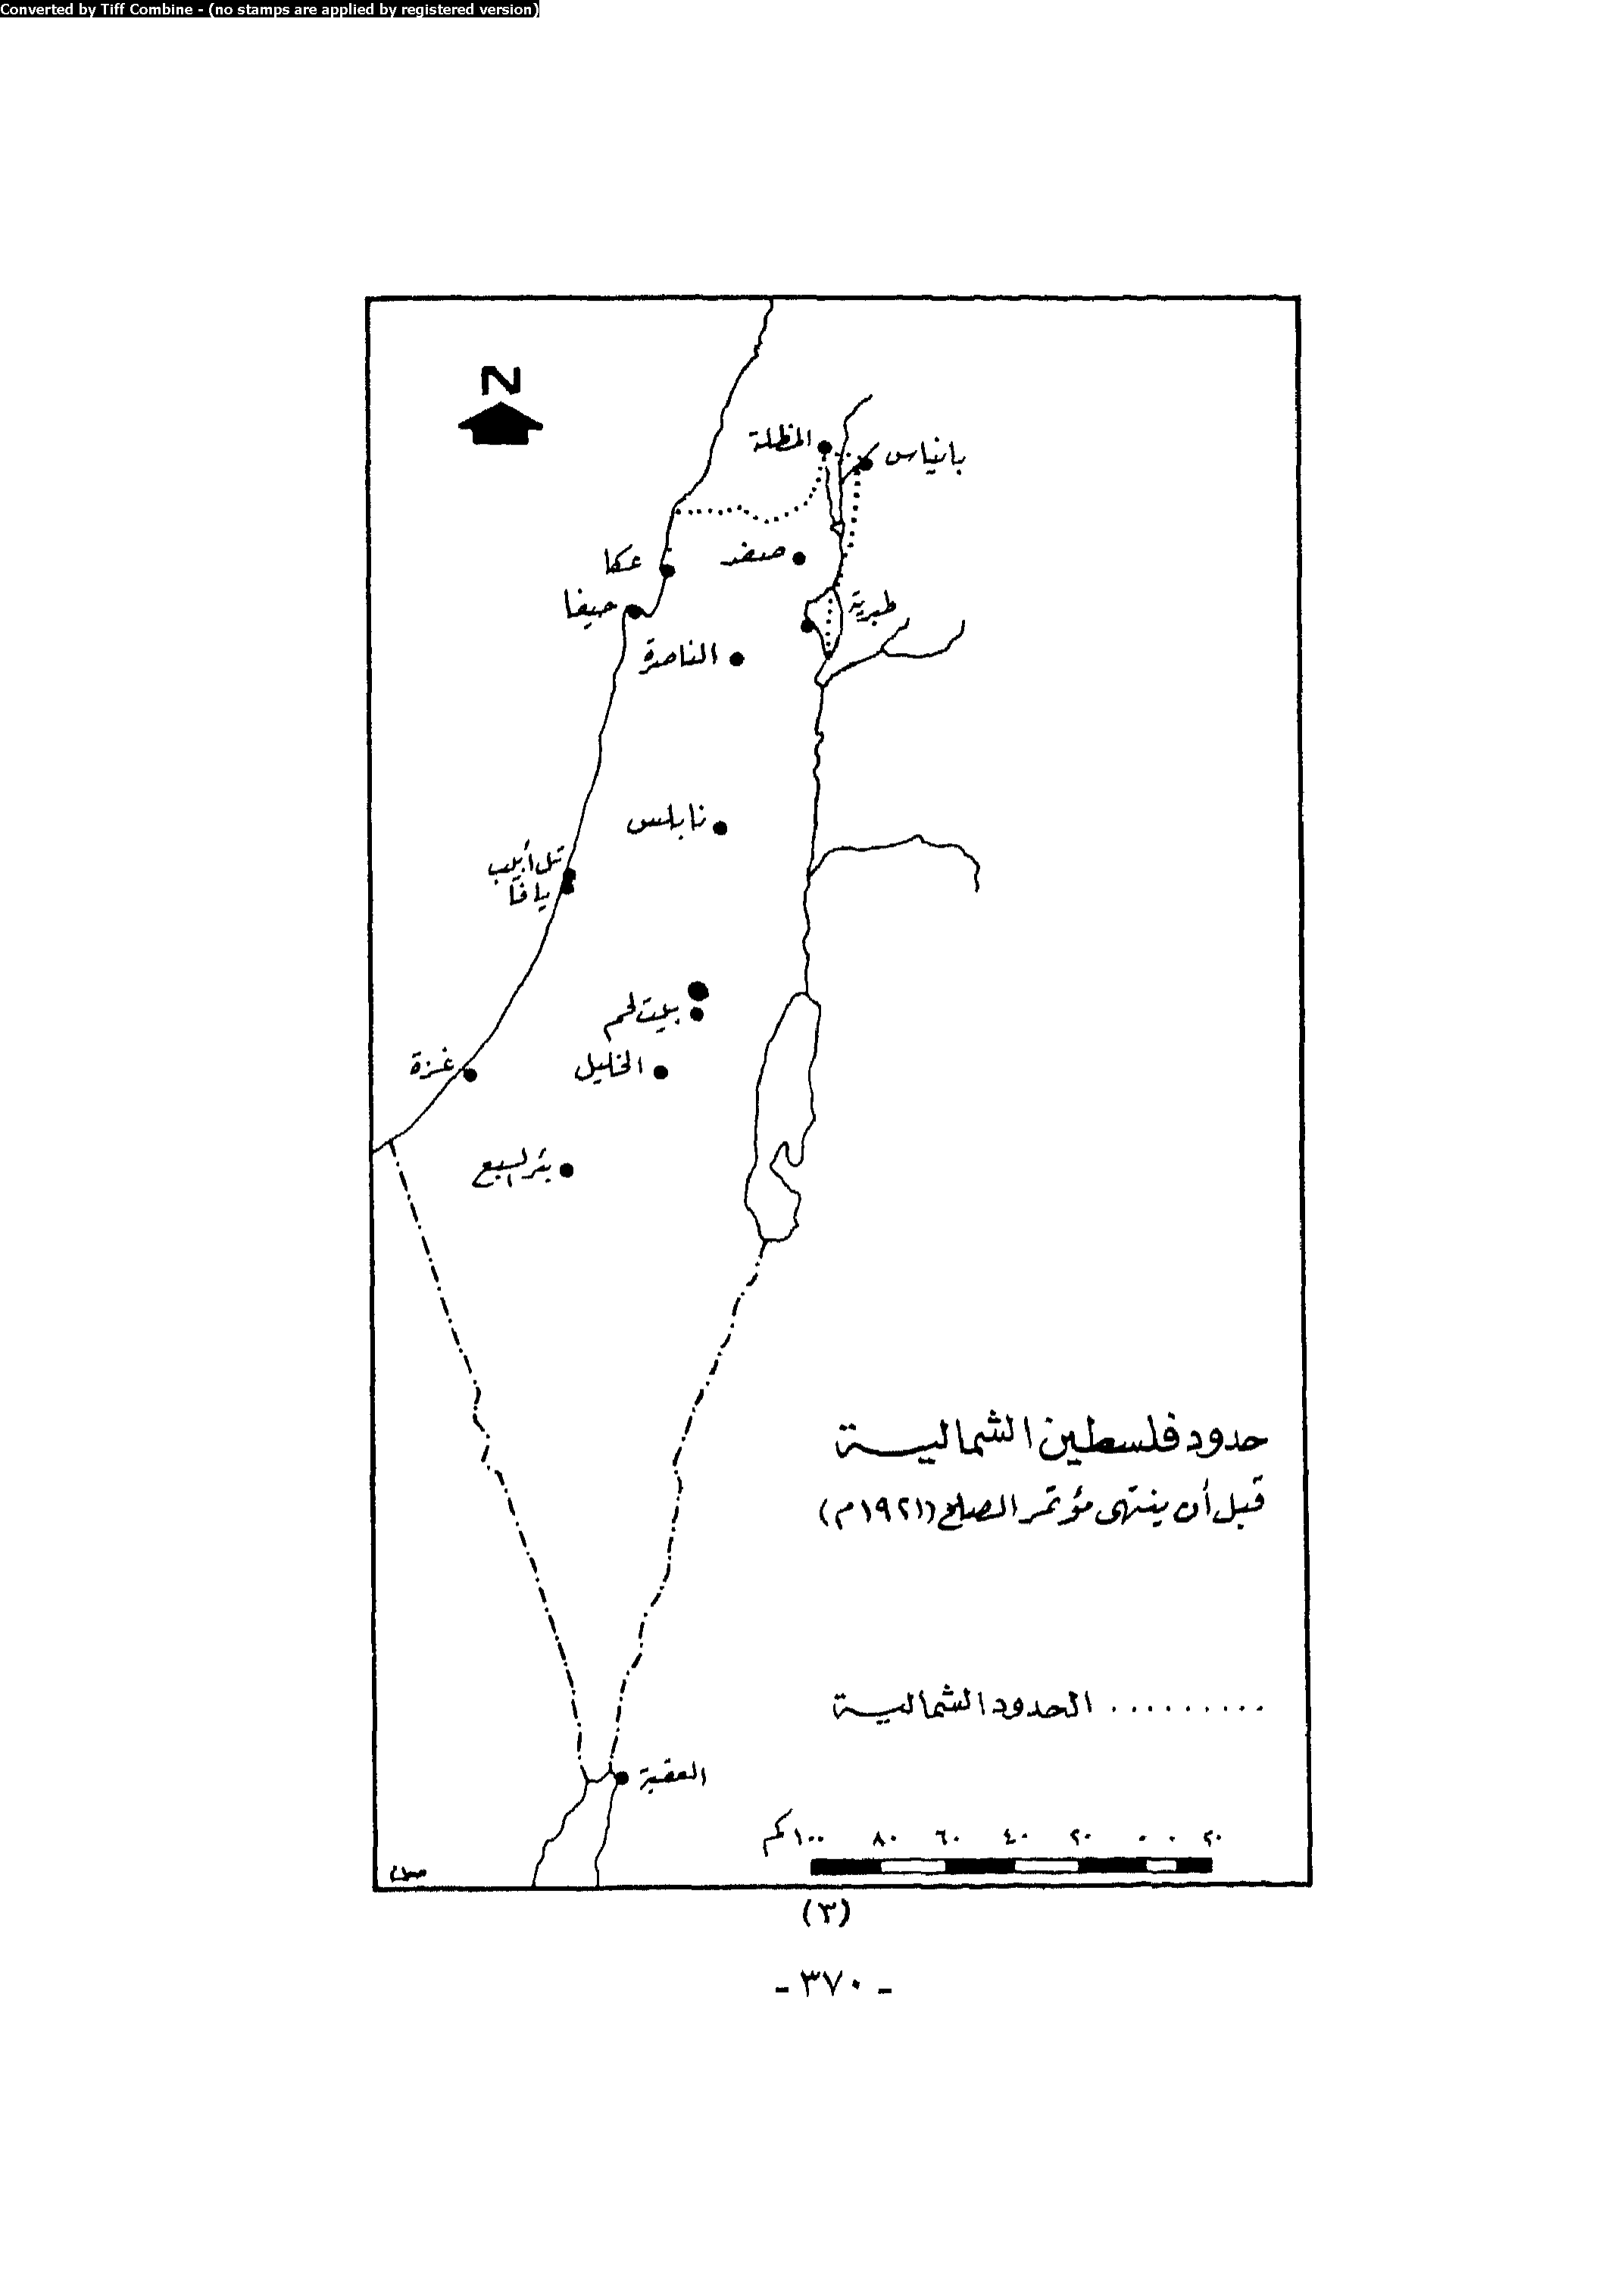 Converted by Tiff Combine - (no stamps are applied by registered version)
N
المظلة
بانياس
صفد
عكا
حيفا
طبرية
الناصرة
نابلس
تل أبيب
يافا
بيت لحم
الخليل
غزة
بئر السبع
حدود فلسطين الشمالية
قبل أن ينتهى مؤتمر الصلح (١٩٢١م)
الحدود الشمالية .........
العقبة
١٠٠كم ٨٠ ٦٠ ٤٠ ٢٠ ٠ ٠ ٢٠
(٣)
- ٣٧٠ -